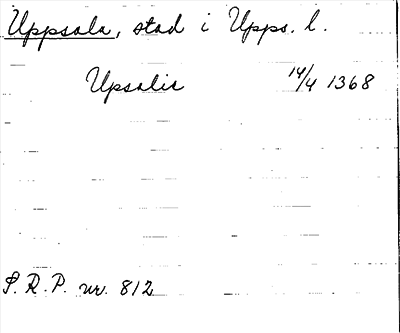 Uppsala, stad i Upps. l.
Upsalie 14/4 1368
S.R.P. nr. 812